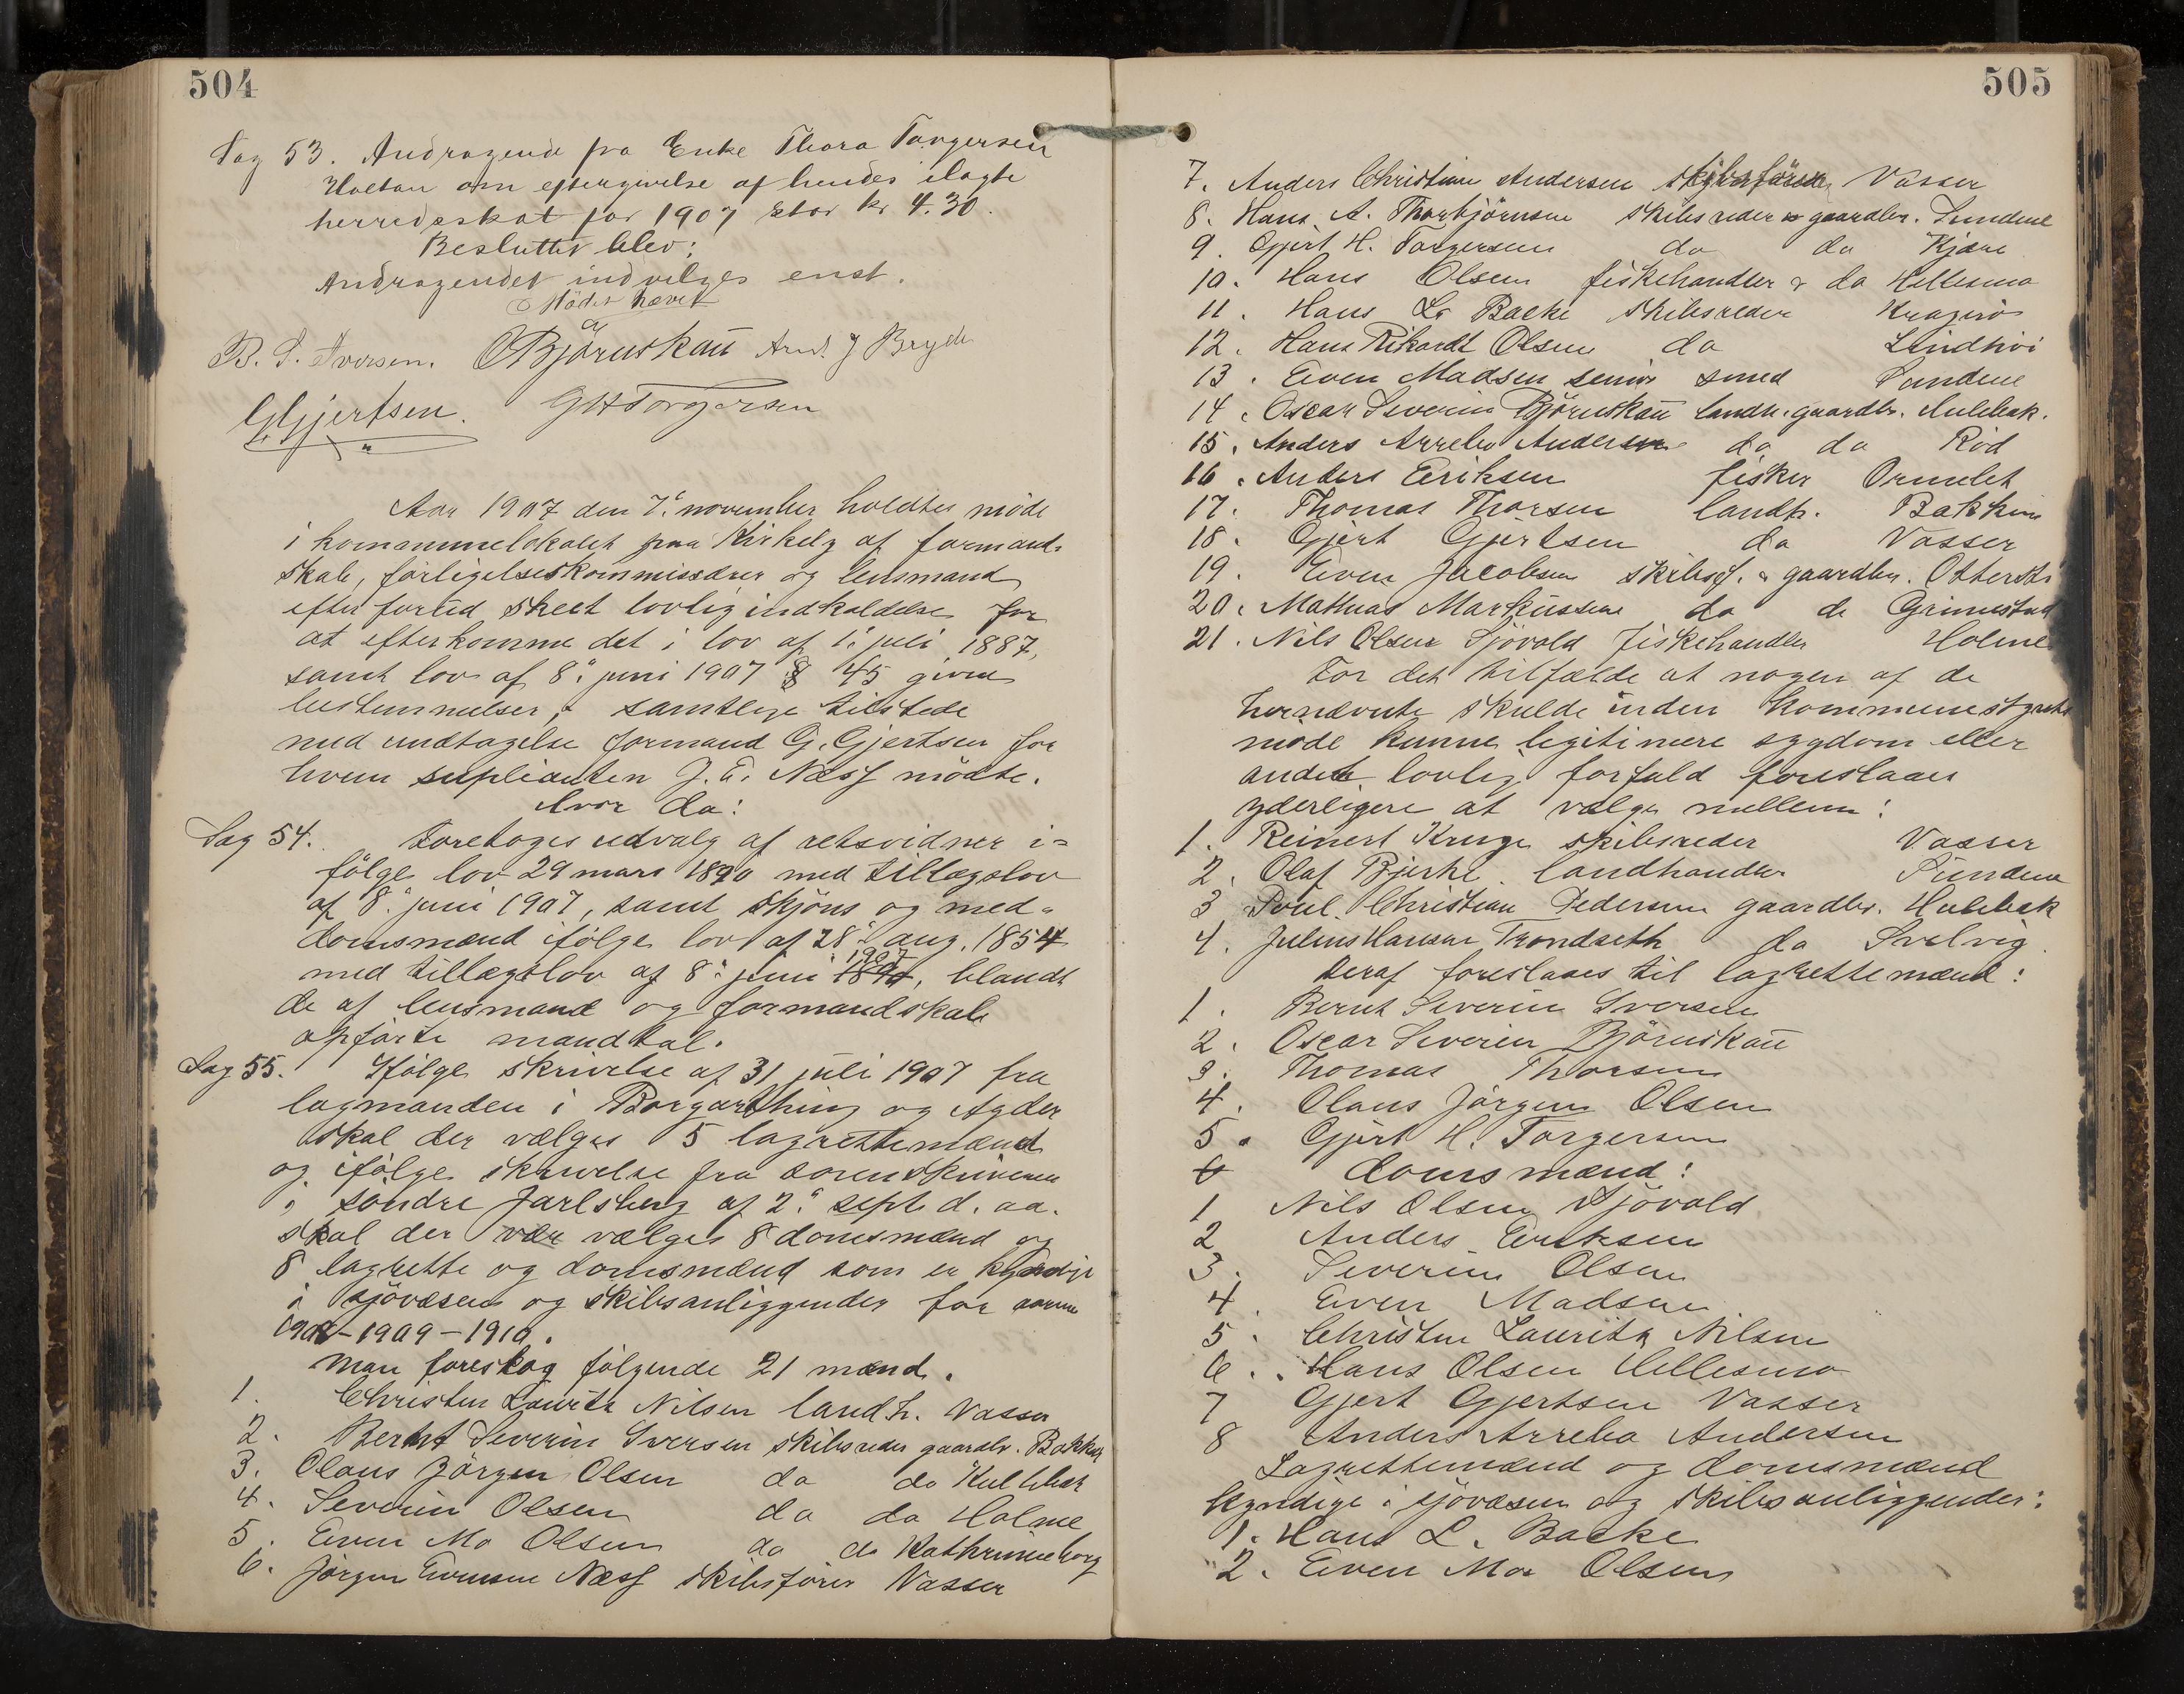 504
Sag 53. Andragende fra Enke Thora Torgersen
Holtan om eftergivelse af hendes ilagte
herredsskat for 1907 stor kr 4.30.
Besluttet blev:
Andragendet indvilges enst.
Mödet hævet
B. S. Iversen. O Björnskau Arnt J Bryde
G Gjertsen. G H Torgersen
Aar 1907 den 7de november holdtes möde
i kommunelokalet paa Kirkely af formand-
skab, forligelseskommissærer og lensmand
efter forud skeet lovlig indkaldelse for
at efterkomme det i lov af 1. juli 1887,
samt lov af 8. juni 1907 § 45 givne
bestemmelser; samtlige tilstede
med undtagelse formand G. Gjertsen for
hvem suplianten J. E. Næss mödte.
Hvor da:
Sag 54. Foretoges udvalg af retsvidner i-
fölge lov 29 mars 1890 med tillægslov
af 8. juni 1907, samt skjöns og med-
domsmænd ifölge lov af 28. aug. 1854
med tillægslov af 8. juni 1907, blandt
de af lensmand og formandskab
opförte mandtal.
Sag 55. Ifölge skrivelse af 31 juli 1907 fra
lagmanden i Borgarthing og Agder
skal der vælges 5 lagrettemænd
og ifölge skrivelse fra sorenskriveren
i söndre Jarlsberg af 2. sept. d. aa.
skal der vær vælges 8 domsmænd og
8 lagrette og domsmænd som er kyndige
i sjövæsen og skibsanliggender for aarene
1908-1909-1910.
Man foreslog fölgende 21 mænd.
1. Christen Lauritz Nilsen landh. Vasser
2. Bernt Severin Iversen skibsreder gaardbr. Bakken
3. Olaus Jörgen Olsen do do Hulebak
4. Severin Olsen do do Holme
5. Even Mo Olsen do do Kathrineborg
6. Jörgen Evensen Næss skibsförer Vasser
505
7. Anders Christian Andersen skibsförer Vasser
8. Hans A. Thorbjörnsen skibsreder gaardbr. Sundene
9. Gjert H. Torgersen do do Kjære
10. Hans Olsen fiskehandler & do Hellesmo
11. Hans L. Backe skibsreder Kragerö
12. Hans Rikardt Olsen do Lindhöi
13. Even Madsen senior smed Sundene
14. Oscar Severin Björnskau landh. gaardbr. Hulebak.
15. Anders Arrebo Andersen do do Röd
16. Anders Eriksen fisker Ormelet
17. Thomas Thorsen landh. Bakken
18. Gjert Gjertsen do Vasser
19. Even Jacobsen skibsf. & gaardbr.
20. Mathias Markussen do do Grimestad
21. Nils Olsen Sjövold fiskehandler Holme
For det tilfælde at nogen af de
hernævnte skulde inden kommunestyrets
möde kunne legitimere sygdom eller
andet lovlig forfald foreslaaes
yderligere at vælge mellem:
1. Reinert Kruge skibsreder Vasser
2. Olaf Bjerke landhandler Sundene
3 Poul Christian Pedersen gaardbr. Hulebak
4. Julius Hansen Trondseth do Svelvig.
Deraf foreslaaes til lagrettemænd:
1. Bernt Severin Iversen
2. Oscar Severin Björnskau
3. Thomas Thorsen
4. Olaus Jörgen Olsen
5. Gjert H. Torgersen
6 domsmænd:
1 Nils Olsen Sjövold
2 Anders Eriksen
3. Severin Olsen
4. Even Madsen
5. Christen Lauritz Nilsen
6. Hans Olsen Hellesmo
7 Gjert Gjertsen Vasser
8 Anders Arrebo Andersen
Lagrettemænd og domsmænd
kyndige i sjövæsen og skibsanliggender:
1. Hans L. Backe
2. Even Mo Olsen